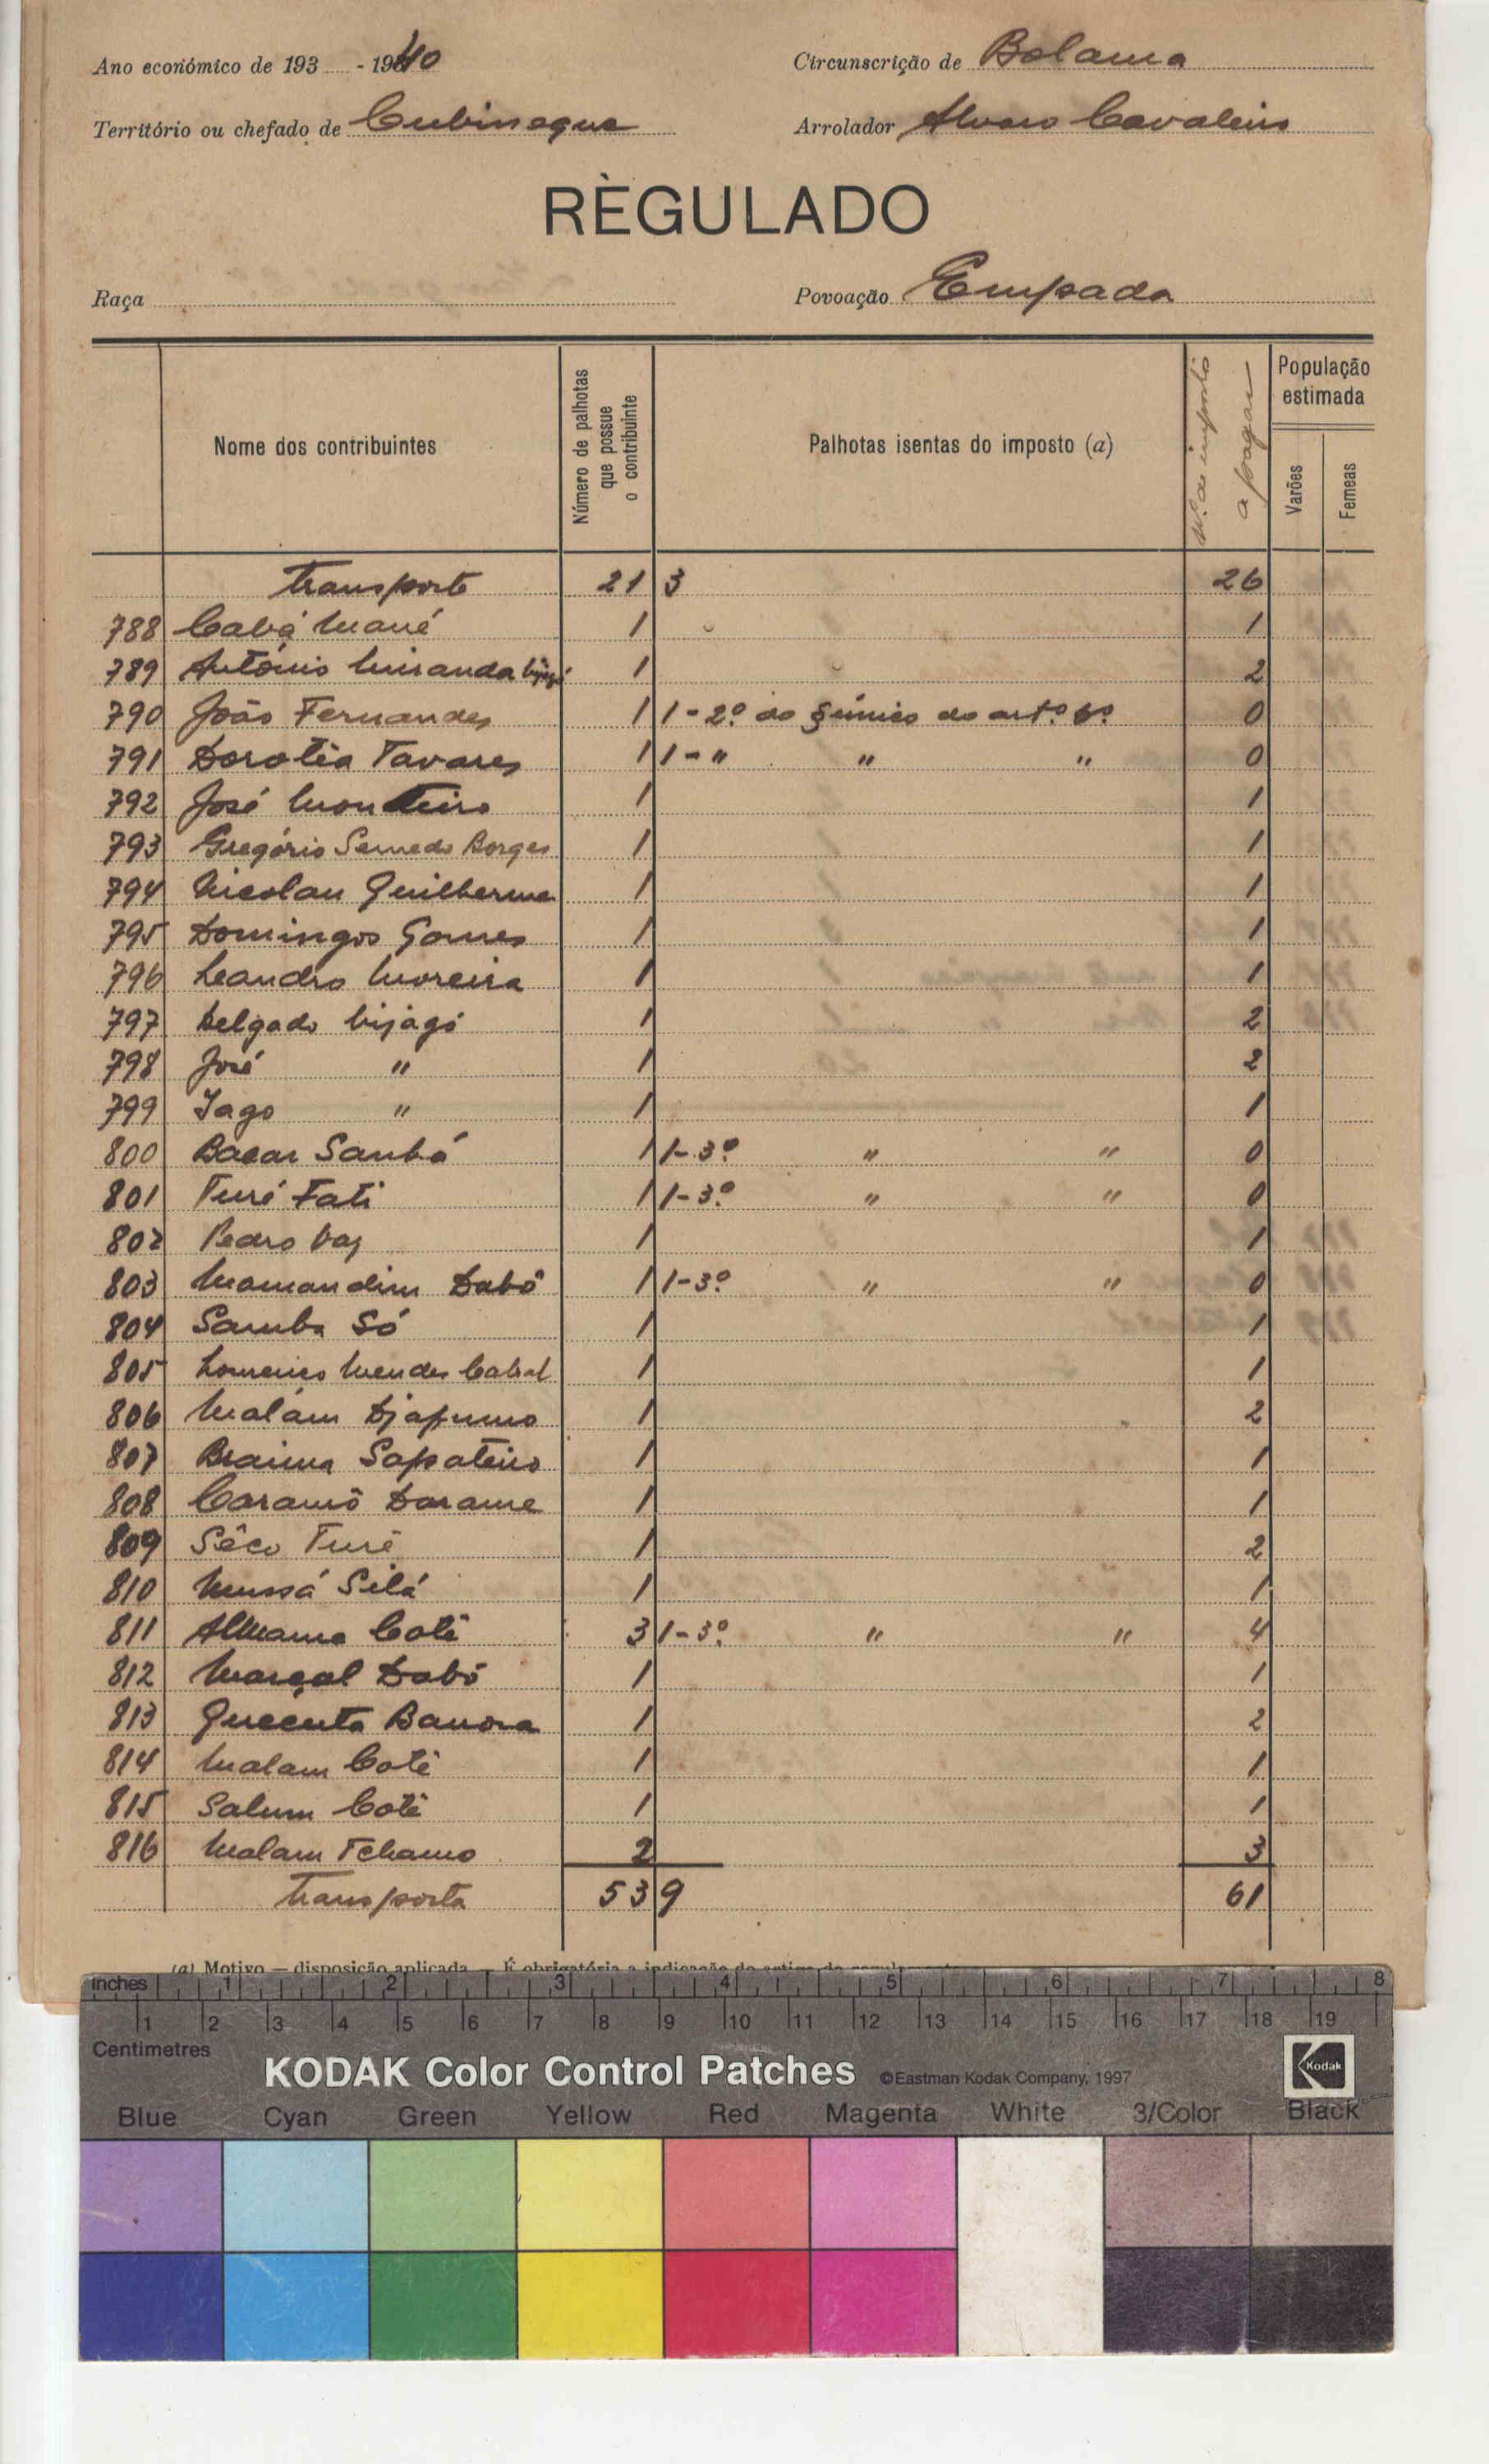 Ano económico de 193 - 1940
Circunscrição de Bolama
Território ou chefado de Cubisseque
Arrolador Alvaro Cavaleiro
RÈGULADO
Raça
Povoação Empada
Nome dos contribuintes
Número de palhotas que possue o contribuinte
Palhotas isentas do imposto (a)
Nº. de imposto a pagar
População estimada
Varões
Femeas
Transporte 21 3 26
788 Cabá Mané 1 1
789 António Miranda bijagó 1 2
790 João Fernandes 1 1-2º do § único do artº. 6º 0
791 Dorotéa Tavares 1 1-" " " 0
792 José Monteiro 1 1
793 Gregório Semedo Borges 1 1
794 Nicolau Guilherme 1 1
795 Domingos Gomes 1 1
796 Leandro Moreira 1 1
797 Delgado bijagó 1 2
798 José " 1 2
799 Iago " 1 1
800 Bacar Sanhá 1 1-3º " " 0
801 Turé Fati 1 1-3º " " 0
802 Pedro Vaz 1 1
803 Mamandim Dabó 1 1-3º " " 0
804 Samba Só 1 1
805 Lourenço Mendes Cabral 1 1
806 Malam Djafuno 1 2
807 Braima Sapateiro 1 1
808 Caramô Darame 1 1
809 Sêco Turé 1 2
810 Mussá Silá 1 1
811 Almame Coté 3 1-3º " " 4
812 Marçal Dabó 1 1
813 Quecuta Banora 1 2
814 Malam Coté 1 1
815 Salum Coté 1 1
816 Malam Tchamo 2 3
Transporta 53 9 61
(a) Motivo — disposição aplicada. — É obrigatória a indicação do artigo do regulamento
inches 1 2 3 4 5 6 7 8
1 2 3 4 5 6 7 8 9 10 11 12 13 14 15 16 17 18 19
Centimetres
KODAK Color Control Patches ©Eastman Kodak Company, 1997 Kodak
Blue Cyan Green Yellow Red Magenta White 3/Color Black